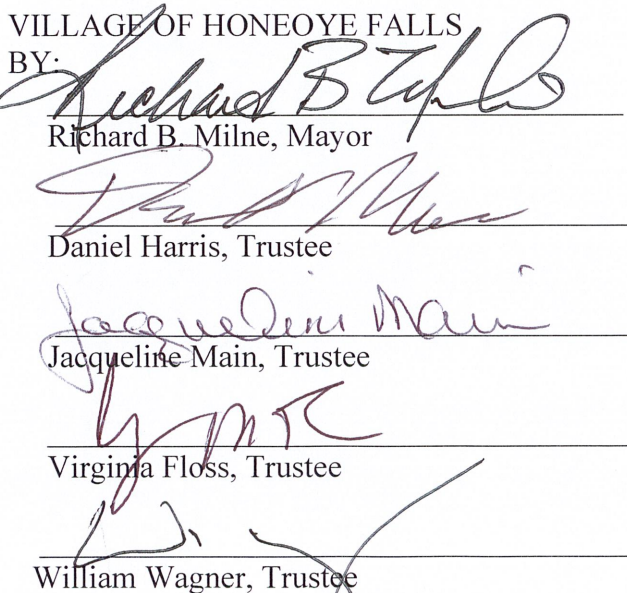 VILLAGE OF HONEOYE FALLS
BY:
Richard B
Richard B. Milne, Mayor
Daniel Harris, Trustee
Jacqueline Main
Jacqueline Main, Trustee
Virginia Floss, Trustee
William Wagner, Trustee